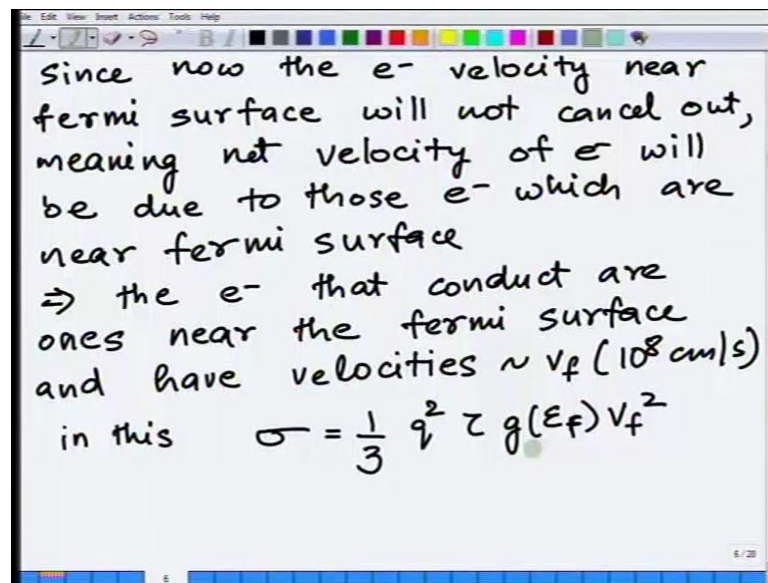 File Edit View Insert Actions Tools Help
since now the e- velocity near
fermi surface will not cancel out,
meaning net velocity of e- will
be due to those e- which are
near fermi surface
⇒ the e- that conduct are
ones near the fermi surface
and have velocities ~ vf (10⁸ cm/s)
in this σ = 1/3 q² τ g(εf) vf²
6/20
6